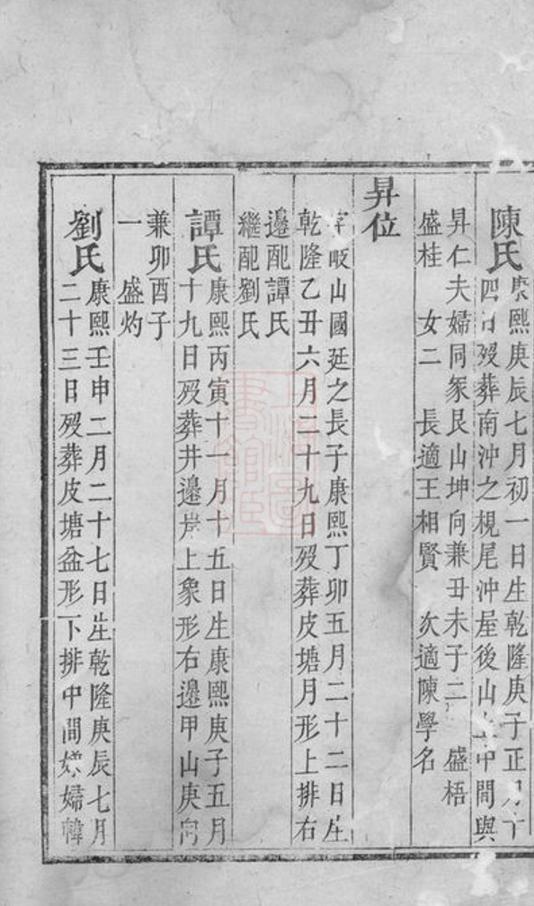 陳氏
康熙庚辰七月初一日生乾隆庚子正月十
四日歿葬南沖之梘尾沖屋後山中間與
昇仁夫婦同冢艮山坤向兼丑未子二 盛梧
盛桂 女二 長適王相賢 次適陳學名
昇位
字岐山國廷之長子康熙丁卯五月二十二日生
乾隆乙丑六月二十九日歿葬皮塘月形上排右
邊配譚氏
繼配劉氏
譚氏
康熙丙寅十一月十五日生康熙庚子五月
十九日歿葬井邊岸上象形右邊甲山庚向
兼卯酉子
一 盛灼
劉氏
康熙壬申二月二十七日生乾隆庚辰七月
二十三日歿葬皮塘盆形下排中間媳婦韓